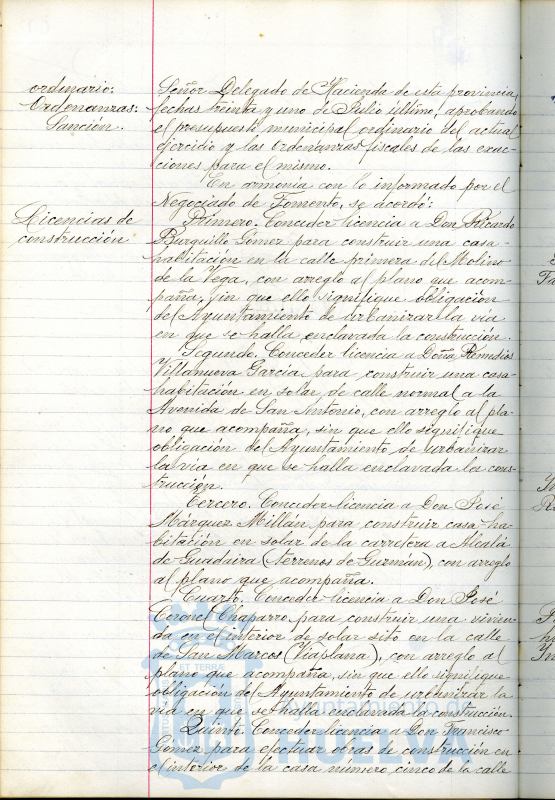 ordinario:
Ordenanzas:
Sanción.
Señor Delegado de Hacienda de esta provincia,
fechas treinta y uno de Julio último, aprobando
el presupuesto municipal ordinario del actual
ejercicio y las ordenanzas fiscales de las exac-
ciones para el mismo.
En armonía con lo informado por el
Negociado de Fomento, se acordó:
Licencias de
construcción
Primero. Conceder licencia a Don Ricardo
Burguillo Gómez para construir una casa-
habitación en la calle primera del Molino
de la Vega, con arreglo al plano que acom-
paña, sin que ello signifique obligación
del Ayuntamiento de urbanizar la vía
en que se halla enclavada la construcción.
Segundo. Conceder licencia a Doña Remedios
Villanueva García para construir una casa-
habitación en solar de calle normal a la
Avenida de San Antonio, con arreglo al pla-
no que acompaña, sin que ello signifique
obligación del Ayuntamiento de urbanizar
la vía en que se halla enclavada la cons-
trucción.
Tercero. Conceder licencia a Don José
Márquez Millán para construir casa-ha-
bitación en solar de la carretera a Alcalá
de Guadaira (terrenos de Guzmán), con arreglo
al plano que acompaña.
Cuarto. Conceder licencia a Don José
Coronel Chaparro para construir una vivien-
da en el interior de solar sito en la calle
de San Marcos (Viaplana), con arreglo al
plano que acompaña, sin que ello signifique
obligación del Ayuntamiento de urbanizar la
vía en que se halla enclavada la construcción.
Quinto. Conceder licencia a Don Francisco
Gómez para efectuar obras de construcción en
el interior de la casa número cinco de la calle
Ayuntamiento de
HUELVA